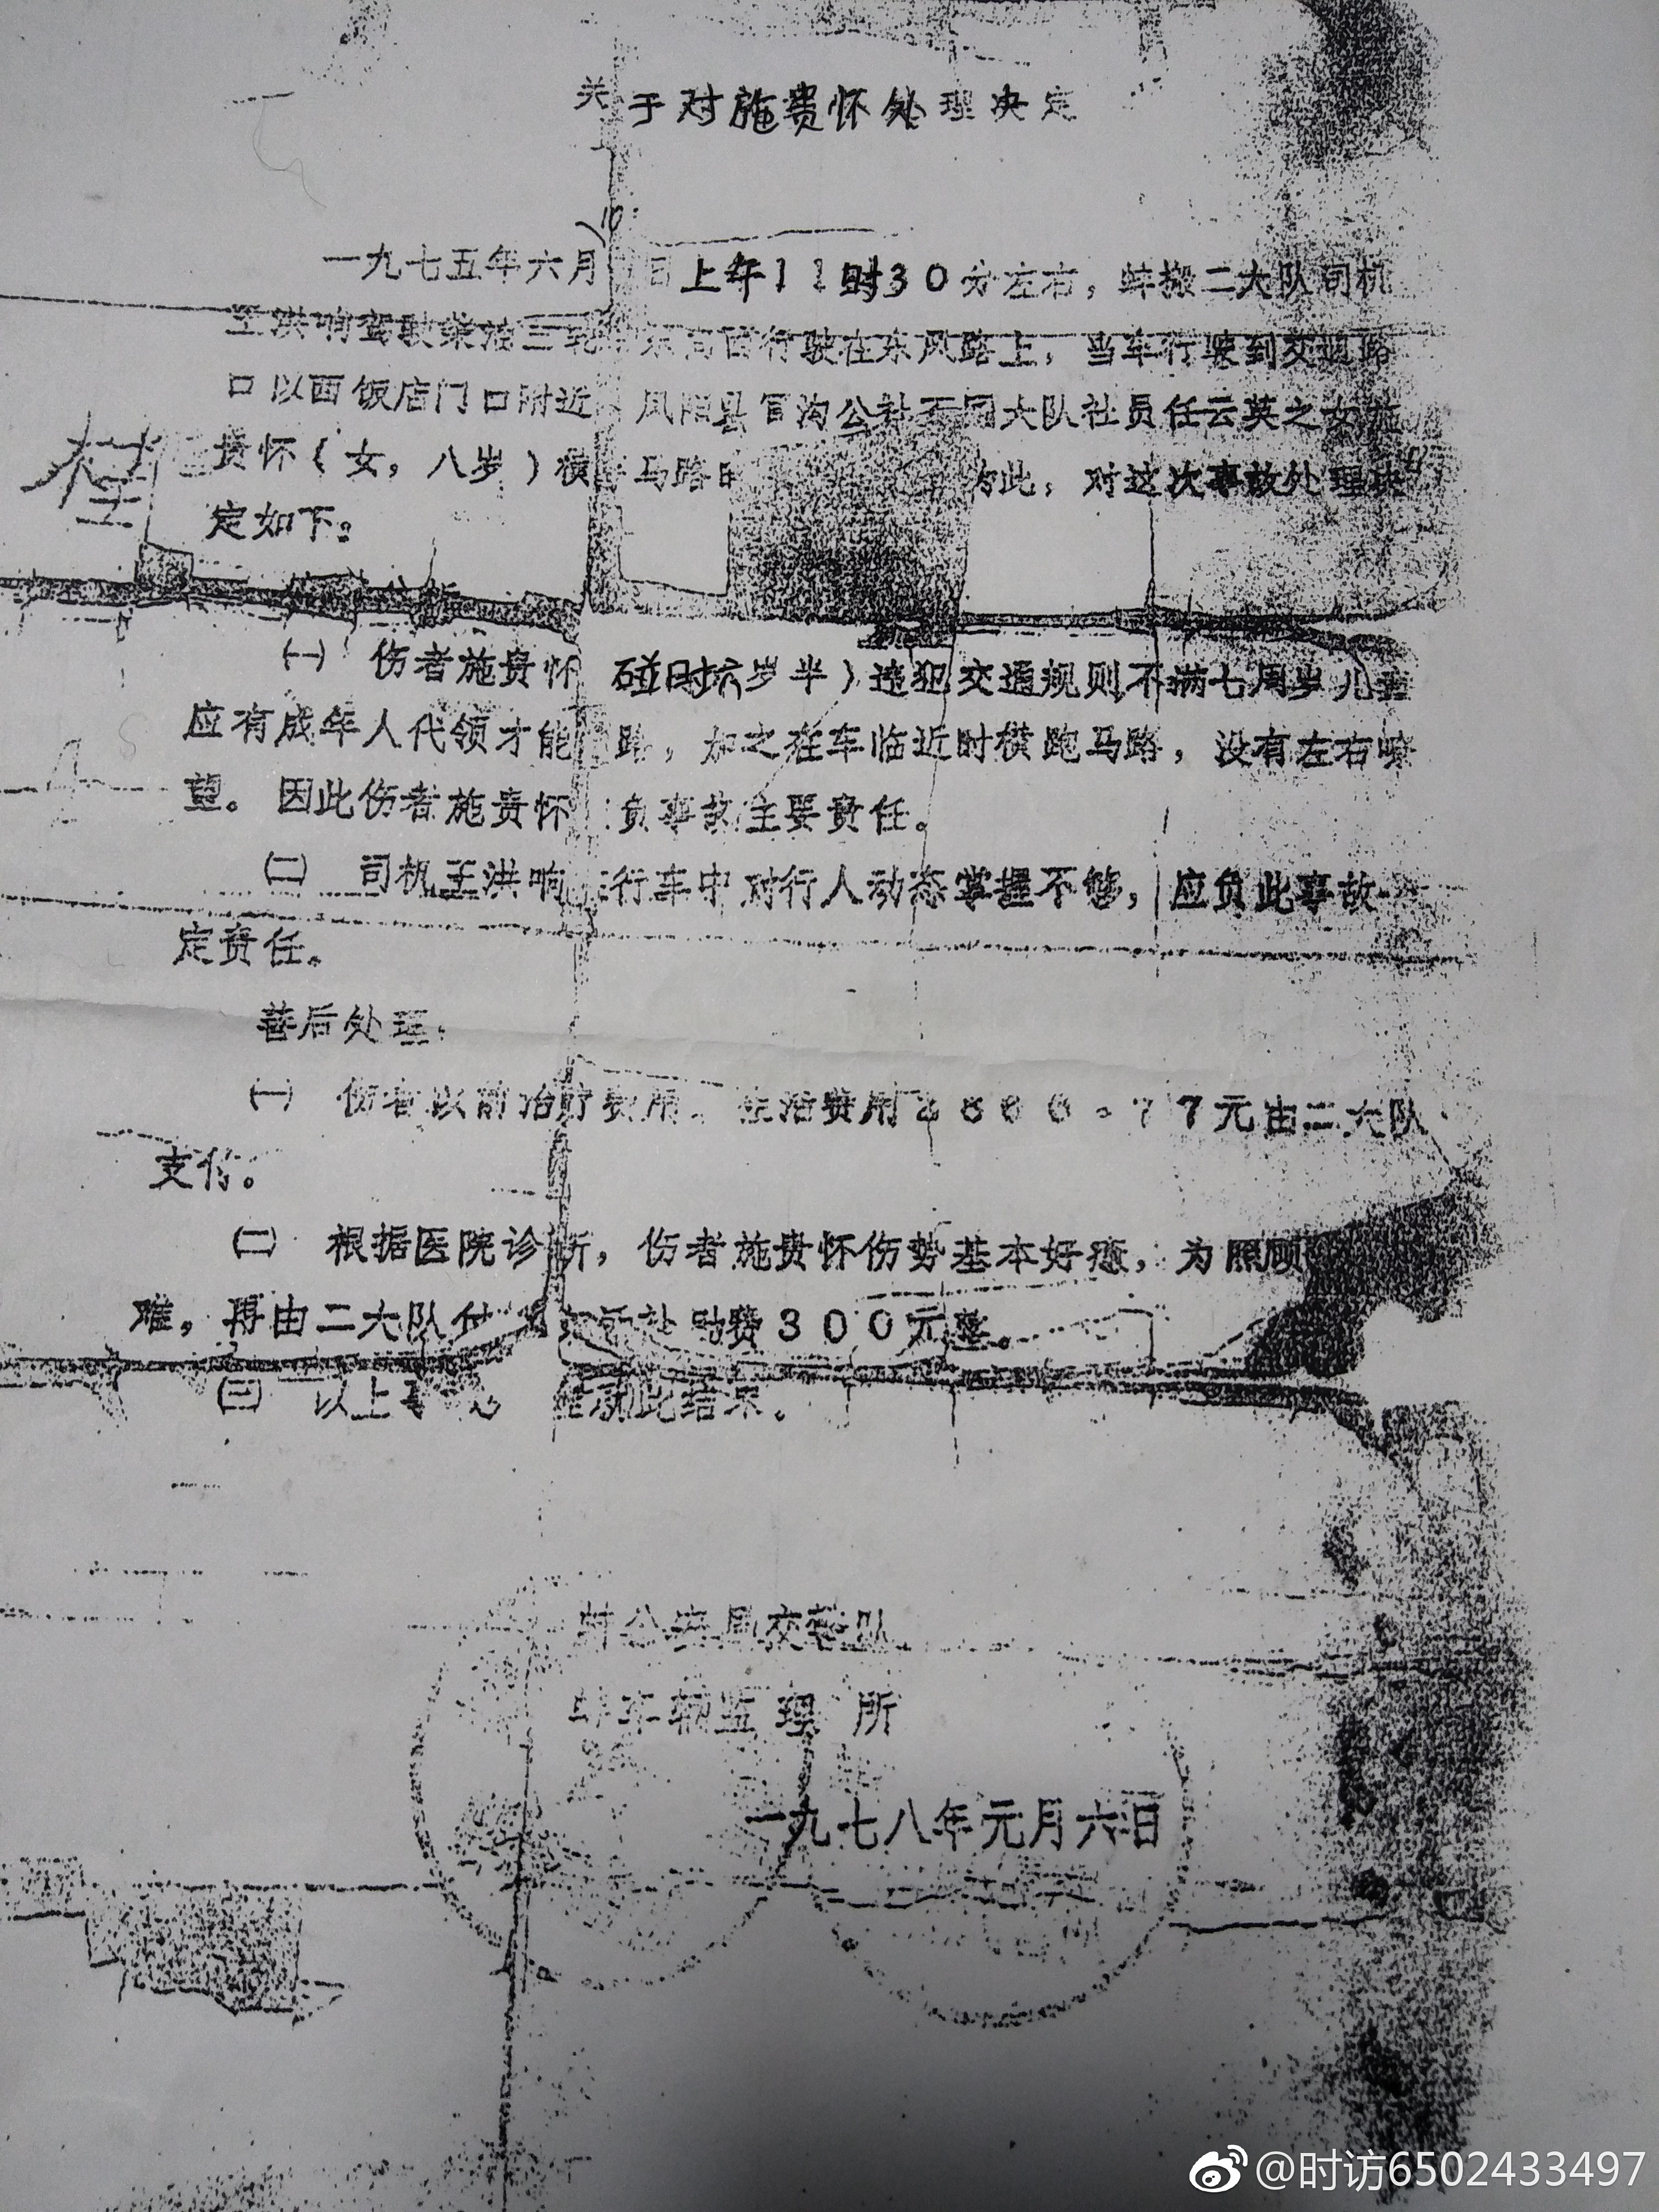 关于对施贵怀处理决定
10
一九七五年六月 日上午11时30分左右，蚌搬二大队司机
王洪响驾驶柴油三轮 东向西行驶在东风路上，当车行驶到交通路
口以西饭店门口附近 凤阳县官沟公社 大队社员任云英之女施
贵怀（女，八岁）横 马路时 为此，对这次事故处理决
定如下：
㈠ 伤者施贵怀 碰时六岁半）违犯交通规则不满七周岁儿童
应有成年人代领才能 路，加之在车临近时横跑马路，没有左右嘹
望。因此伤者施贵怀 负事故主要责任。
㈡ 司机王洪响在行车中对行人动态掌握不够，应负此事故一
定责任。
善后处理：
㈠ 伤者以前治疗费用、生活费用 77元由二大队
支付。
㈡ 根据医院诊断，伤者施贵怀伤势基本好愈，为照顾
难，再由二大队付 补贴费300元整。
㈢ 以上 此结束。
蚌公安局交警队
蚌车辆监理所
一九七八年元月六日
@时访6502433497